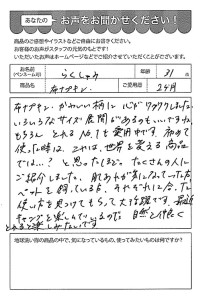 あなたの
お声をお聞かせください!
商品のご感想やイラストなどご自由にお書きください。
お客様のお声がスタッフの元気のもとです!
いただいたお声はホームページなどでご紹介させていただくことがございます。
お名前
(ペンネーム可)
らくしゅう
年齢
31才
商品名
布ナプキン
ご愛用歴
2ヶ月
布ナプキン、かわいい柄に心がワクワクしました。
いろいろなサイズ展開があるのもいいですね。
もちろん とれるNo.1を愛用中です。初めて
使った時は、これは、世界を変える商品
では…?と思ったほど。たくさんの人に
ご紹介しました。肌あれが気になっていた方
ペットを飼っている方、それぞれに合った
使い方を見つけてもらって大好評です。最近
キャンプを楽しんでいるので、自然と仲良く
とれると楽しみたいです
地球洗い隊の商品の中で、気になっているもの、使ってみたいものは何ですか?